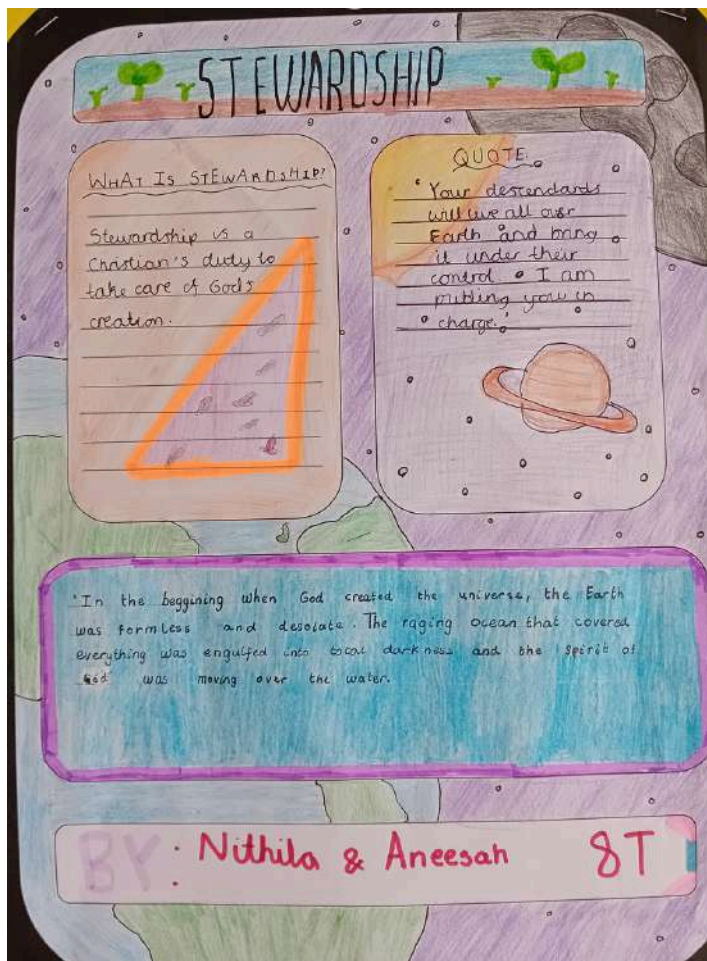 STEWARDSHIP
WHAT IS STEWARDSHIP?
Stewardship is a
Christian's duty to
take care of God's
creation.
QUOTE:
"Your descendards
will live all over
Earth and bring
it under their
control. I am
putting you in
charge."
"In the beggining when God created the universe, the Earth
was formless and desolate. The raging ocean that covered
everything was engulfed into total darkness and the spirit of
God was moving over the water.
BY: Nithila & Aneesah 8T